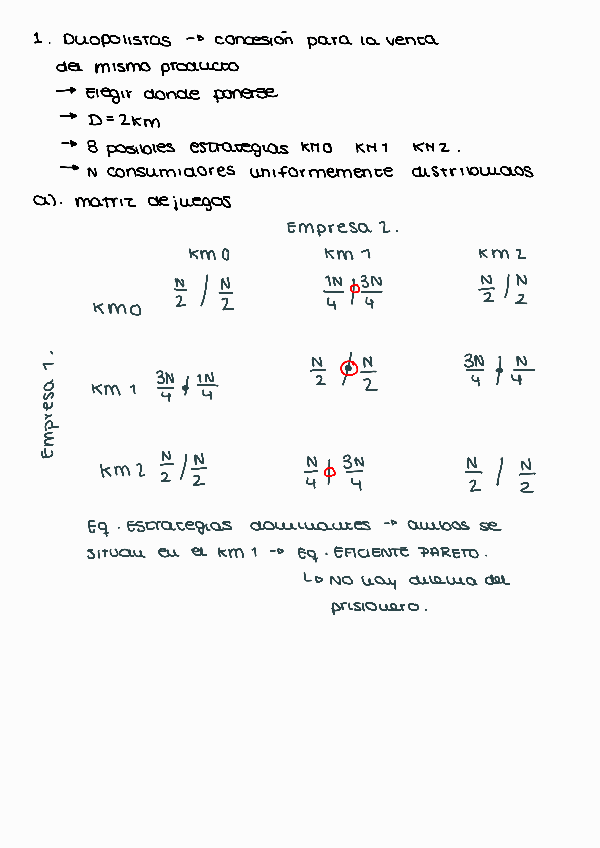 1. Duopolistas → concesión para la venta
del mismo producto
→ Elegir donde ponerse
→ D = 2km
→ 8 posibles estrategias KM0 KM1 KM2.
→ N consumidores uniformemente distribuidos
a). matriz de juegos
Empresa 2.
km 0 km 1 km 2
km 0 N/2 / N/2 1N/4 / 3N/4 N/2 / N/2
Empresa 1.
km 1 3N/4 / 1N/4 N/2 / N/2 3N/4 / N/4
km 2 N/2 / N/2 N/4 / 3N/4 N/2 / N/2
Eq. Estrategias dominantes → ambos se
situan en el km 1 → Eq. EFICIENTE PARETO.
↳ No hay dilema del
prisionero.